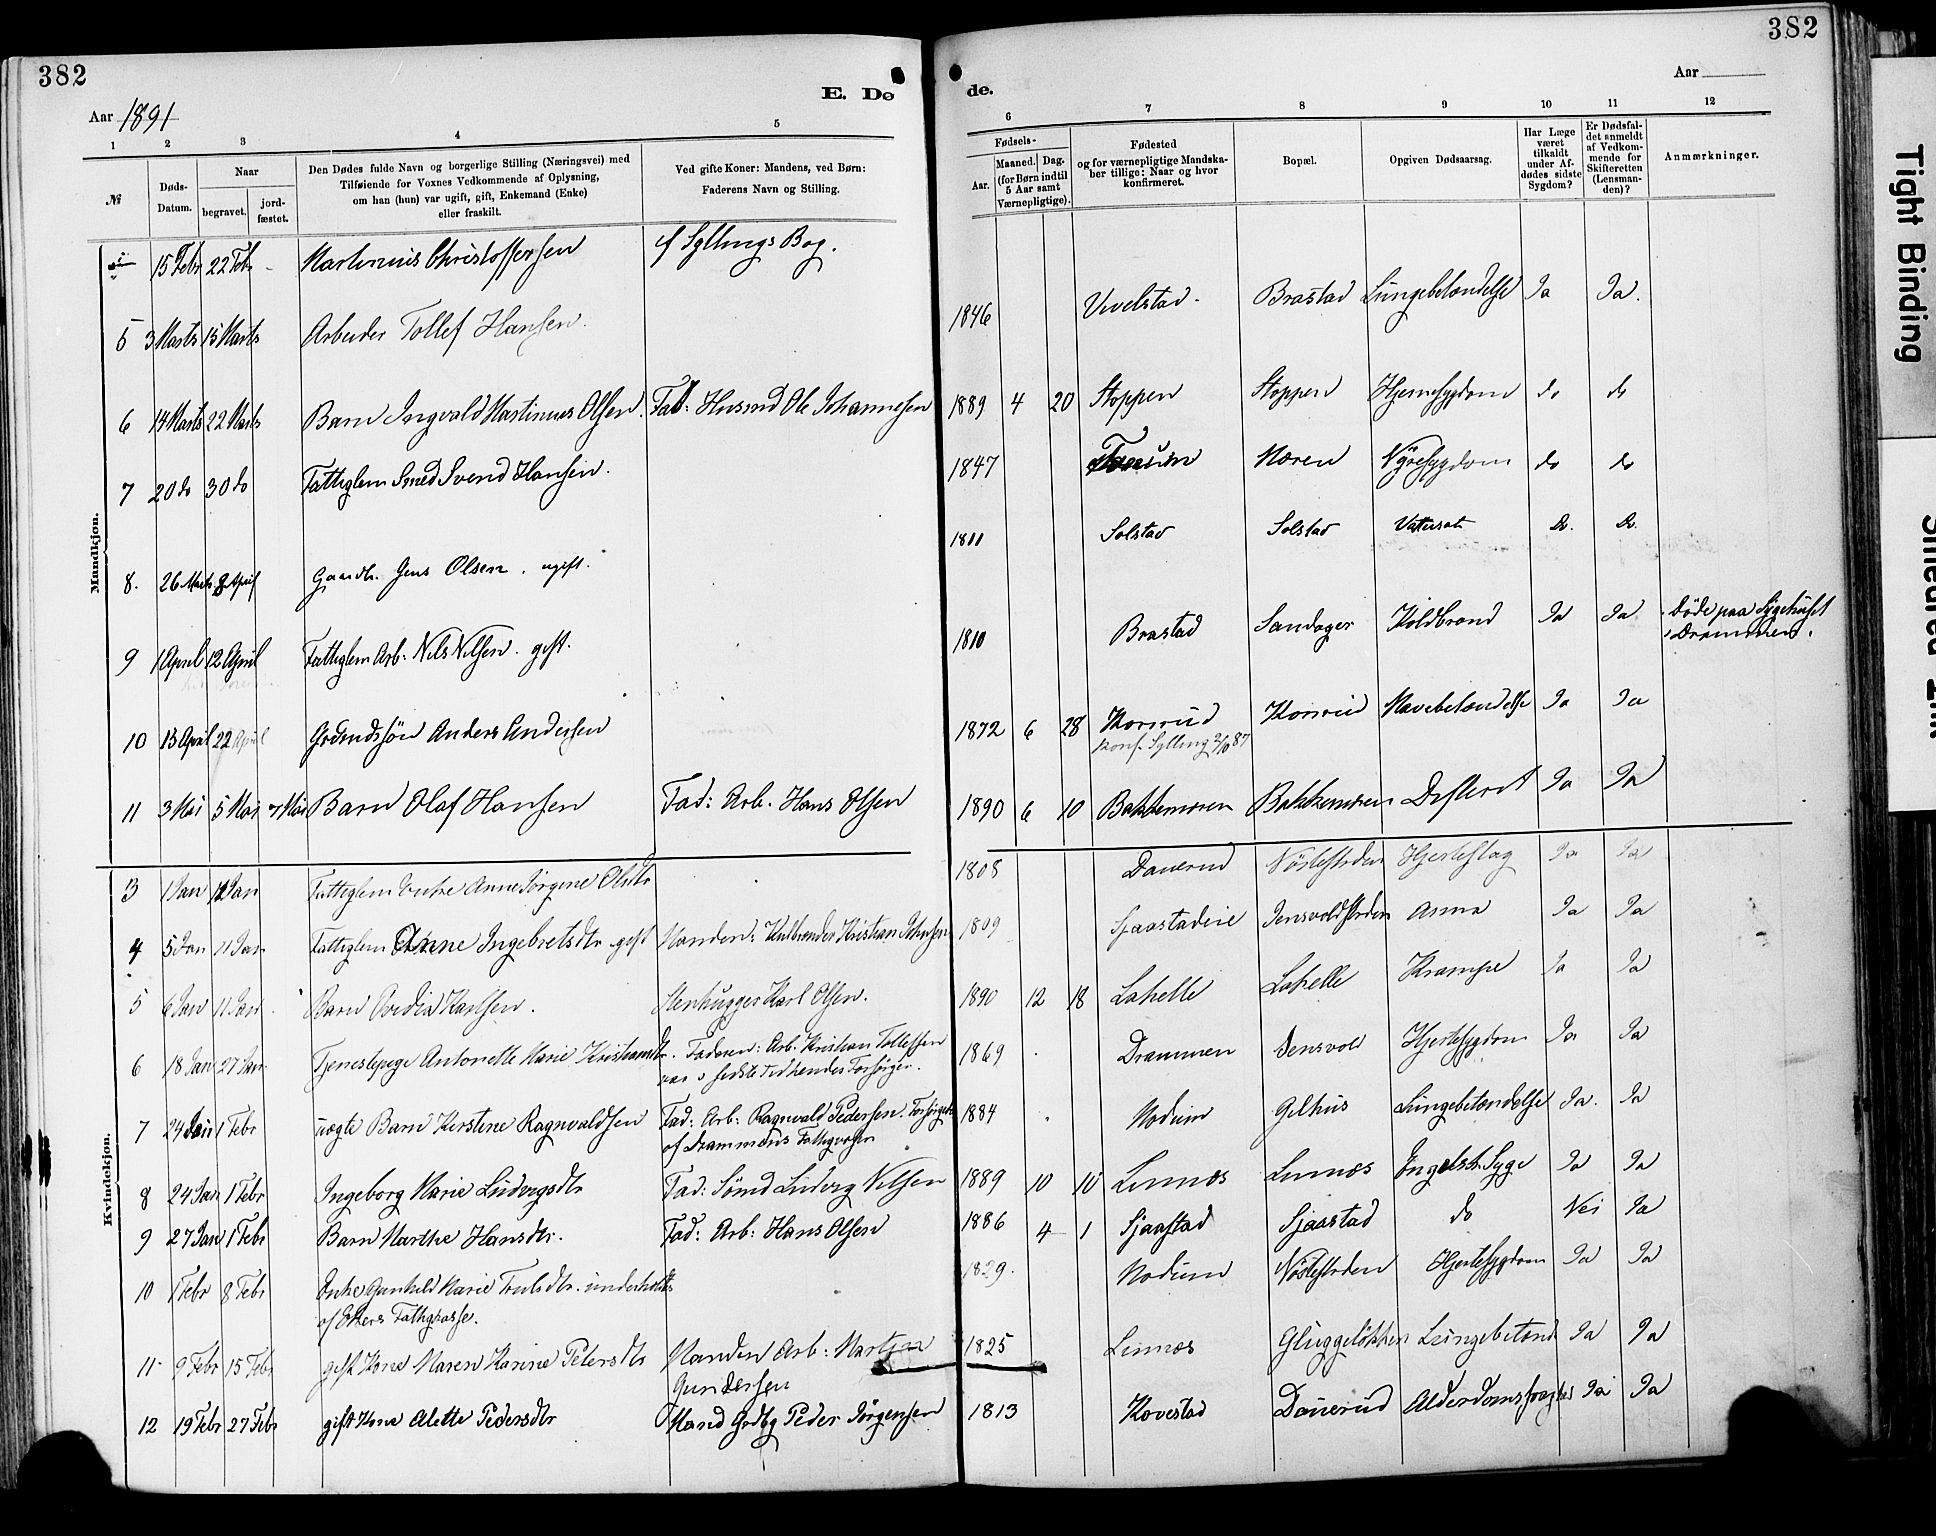 382
382
E. Dø
de.
Aar 1891
Aar
1 2 3 4 5
6 7 8 9 10 11 12
№
Døds-
Datum.
Naar
begravet.
jord-
fæstet.
Den Dødes fulde Navn og borgerlige Stilling (Næringsvei) med
Tilføiende for Voxnes Vedkommende af Oplysning,
om han (hun) var ugift, gift, Enkemand (Enke)
eller fraskilt.
Ved gifte Koner: Mandens, ved Børn:
Faderens Navn og Stilling.
Fødsels-
Aar.
Maaned. Dag.
(for Børn indtil
5 Aar samt
Værnepligtige).
Fødested
og for værnepligtige Mandska-
ber tillige: Naar og hvor
konfirmeret.
Bopæl.
Opgiven Dødsaarsag.
Har Læge
været
tilkaldt
under Af-
dødes sidste
Sygdom?
Er Dødsfal-
det anmeldt
af Vedkom-
mende for
Skifteretten
(Lensman-
den)?
Anmærkninger.
Mandkjøn.
15 Febr 22 Febr - Martinius Christoffersen cf Syllings Bog.
5 3 Marts 15 Marts Arbeider Tollef Hansen. 1846 Vivelstad. Brastad Lungebetændelse Ja Ja.
6 14 Marts 22 Marts Barn Ingvald Martinius Olsen. Fad: Husmd Ole Johannesen 1889 4 20 Stoppen Stoppen Hjernesygdom do do
7 20 do 30 do Fattiglem Smed Svend Hansen. 1847 Møren Nyresygdom do do
8. 26 Marts 8 April Gaardbr. Jens Olsen. ugift. 1811 Solstad Solstad Vatersot Do. Do.
9 1 April 12 April Fattiglem Arb: Nils Nilsen. gift. 1810 Brastad Sandager Koldbrand Ja Ja Døde paa Sygehuset
i Drammen.
10 13 April 22 April Grdmdssøn Anders Andersen 1872 6 28 Korsrud Korsrud Mavebetændelse Ja Ja
konf. Sylling 2/10 87
11 3 Mai 5 Mai 7 Mai Barn Olaf Hansen Fad: Arb. Hans Olsen 1890 6 10 Bakkemoren Bakkemoren Difterit Ja Ja
Kvindekjøn.
3 1 Jan 12 Jan Fattiglem Enke Anne Jørgine Olsdtr 1808 Danerud Nøstestrden Hjerteslag Ja Ja
4 5 Jan 11 Jan Fattiglem Anne Ingebretsdtr gift Manden: Kulbrænder Kristian Johnsen 1809 Sjaastadeie Jensvoldstrden Asma Ja Ja
5 6 Jan 11 Jan. Barn Ovidia Karlsen. Stenhugger Karl Olsen. 1890 12 18 Lahelle Lahelle Krampe Ja Ja
6 18 Jan 27 Jan. Tjenestepige Antonette Marie Kristiansdtr. Faderen: Arb. Kristian Tollefsen 1869 Drammen Jensvold Hjertesygdom Ja Ja
var i sidste Tid hendes Forsørger.
7 24 Jan 1 Febr uægte Barn Kirstine Ragnvaldsen Fad: Arb: Ragnvald Pedersen. Forsørgedes 1884 Modum Gilhus Lungebetændelse Ja. Ja
af Drammens Fattigvæsen
8 24 Jan 1 Febr Ingeborg Marie Ludvigsdtr Fad: Sømd Ludvig Nilsen 1889 10 10 Linnæs Linnæs Engelsk Syge Ja Ja
9 27 Jan 1 Febr Barn Marthe Hansdtr. Fad: Arb: Hans Olsen 1886 4 1 Sjaastad Sjaastad do Nei Ja
10 1 Febr 8 Febr Enke Gunhild Marie Trulsdtr. underholdtes 1829. Modum Nøstestrden Hjertesygdom Ja Ja
af Ekers Fattigkasse.
11 9 Febr 15 Febr gift Kone Maren Karine Petersdtr Manden Arb: Martin 1825 Linnæs Gluggeløkken Lungebetænd Ja Ja
Gundersen
12 19 Febr 27 Febr gift Kone Alette Pedersdtr Mand Grdbg Peder Jørgensen 1813 Kovestad Danerud Alderdomssvaghed Ja Ja
Tight Binding